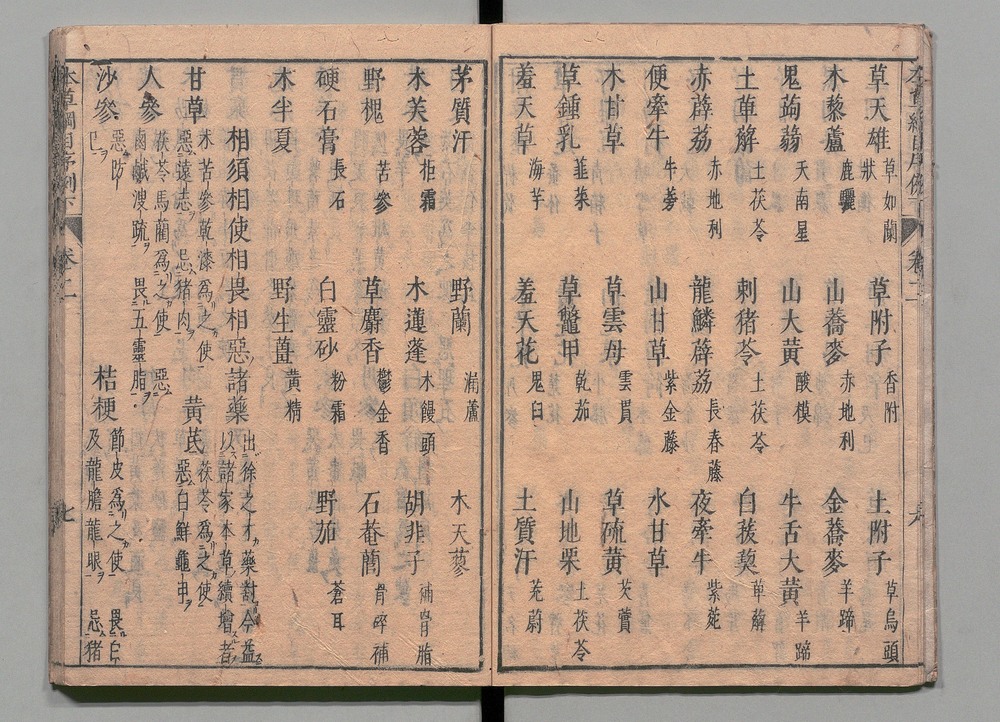 草天雄 草如蘭狀 草附子 香附 土附子 草烏頭
木藜蘆 鹿驪 山蕎麥 赤地利 金蕎麥 羊蹄
鬼蒟蒻 天南星 山大黃 酸模 牛舌大黃 羊蹄
土萆薢 土茯苓 刺猪苓 土茯苓 白菝葜 萆薢
赤薜荔 赤地利 龍鱗薜荔 長春藤 夜牽牛 紫菀
便牽牛 牛蒡 山甘草 紫金藤 水甘草
木甘草 草雲母 雲實 草硫黃 芡實
草鍾乳 韮菜 草鼈甲 乾茄 山地栗 土茯苓
羞天草 海芋 羞天花 鬼臼 土質汗 茺蔚
茅質汗 野蘭 漏蘆 木天蓼
木芙蓉 拒霜 木蓮蓬 木饅頭 胡非子
野槐 苦參 草麝香 鬱金香 石菴䕡 骨碎補
硬石膏 長石 白靈砂 粉霜 野茄 蒼耳
木半夏 野生薑 黃精
相須相使相畏相惡諸藥 出徐之才藥對今益以諸家本草續增者
甘草 朮苦參乾漆爲之使惡遠志忌猪肉 黃芪 茯苓爲之使惡白鮮龜甲
人參 茯苓馬藺爲之使惡鹵鹹溲疏畏五靈脂
沙參 惡防已 桔梗 節皮爲之使畏白及龍膽龍眼忌猪